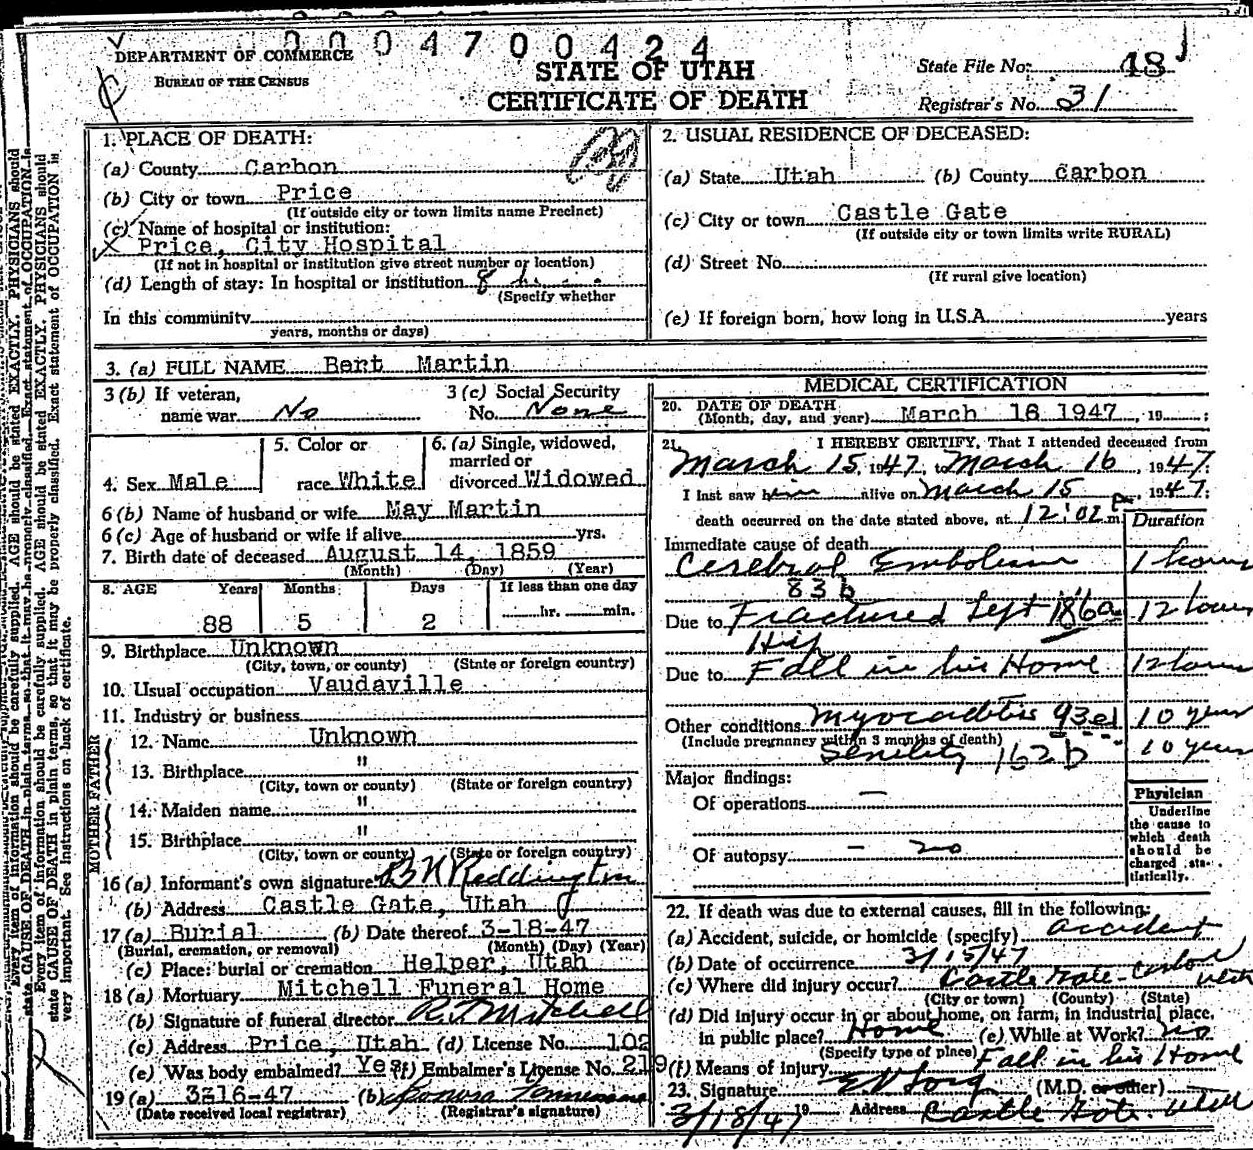 0004700424
DEPARTMENT OF COMMERCE
BUREAU OF THE CENSUS
STATE OF UTAH
CERTIFICATE OF DEATH
State File No. 48
Registrar's No. 31
1. PLACE OF DEATH:
(a) County Carbon
(b) City or town Price
(If outside city or town limits name Precinct)
(c) Name of hospital or institution:
Price, City Hospital
(If not in hospital or institution give street number or location)
(d) Length of stay: In hospital or institution 8
(Specify whether
In this community
years, months or days)
2. USUAL RESIDENCE OF DECEASED:
(a) State Utah (b) County Carbon
(c) City or town Castle Gate
(If outside city or town limits write RURAL)
(d) Street No.
(If rural give location)
(e) If foreign born, how long in U.S.A. years
3. (a) FULL NAME Bert Martin
3 (b) If veteran,
name war No
3 (c) Social Security
No. None
4. Sex Male
5. Color or
race White
6. (a) Single, widowed,
married or
divorced Widowed
6 (b) Name of husband or wife May Martin
6 (c) Age of husband or wife if alive yrs.
7. Birth date of deceased August 14, 1859
(Month) (Day) (Year)
8. AGE Years Months Days If less than one day
88 5 2 hr. min.
9. Birthplace Unknown
(City, town, or county) (State or foreign country)
10. Usual occupation Vaudaville
11. Industry or business
FATHER
12. Name Unknown
13. Birthplace "
(City, town or county) (State or foreign country)
MOTHER
14. Maiden name "
15. Birthplace "
(City, town or county) (State or foreign country)
16 (a) Informant's own signature B N Reddington
(b) Address Castle Gate, Utah
17 (a) Burial (b) Date thereof 3-18-47
(Burial, cremation, or removal) (Month) (Day) (Year)
(c) Place: burial or cremation Helper, Utah
18 (a) Mortuary Mitchell Funeral Home
(b) Signature of funeral director R. T. Mitchell
(c) Address Price, Utah (d) License No. 102
(e) Was body embalmed? Yes (f) Embalmer's License No. 219
19 (a) 3-16-47 (b)
(Date received local registrar) (Registrar's signature)
MEDICAL CERTIFICATION
20. DATE OF DEATH
(Month, day, and year) March 16 1947, 19 ;
21. I HEREBY CERTIFY, That I attended deceased from
March 15, 1947, to March 16, 1947;
I last saw him alive on March 15, 1947;
death occurred on the date stated above, at 12:02 P m.
Duration
Immediate cause of death
Cerebral Embolism 1 hour
83 b
Due to Fractured Left 186a 12 hours
Hip
Due to Fall in his Home 12 hours
Other conditions Myocarditis 93ed 10 years
(Include pregnancy within 3 months of death)
Senility 162b 10 years
Major findings:
Of operations —
Of autopsy — no
Physician
Underline
the cause to
which death
should be
charged sta-
tistically.
22. If death was due to external causes, fill in the following:
(a) Accident, suicide, or homicide (specify) accident
(b) Date of occurrence 3/15/47
(c) Where did injury occur? Castle Gate Carbon Utah
(City or town) (County) (State)
(d) Did injury occur in or about home, on farm, in industrial place,
in public place? Home (e) While at Work? no
(Specify type of place)
(f) Means of injury Fall in his Home
23. Signature (M.D. or other)
3/18/47 19 Address Castle Gate Utah
Every item of information should be carefully supplied. AGE should be stated EXACTLY. PHYSICIANS should
state CAUSE OF DEATH in plain terms, so that it may be properly classified. Exact statement of OCCUPATION is
very important. See instructions on back of certificate.